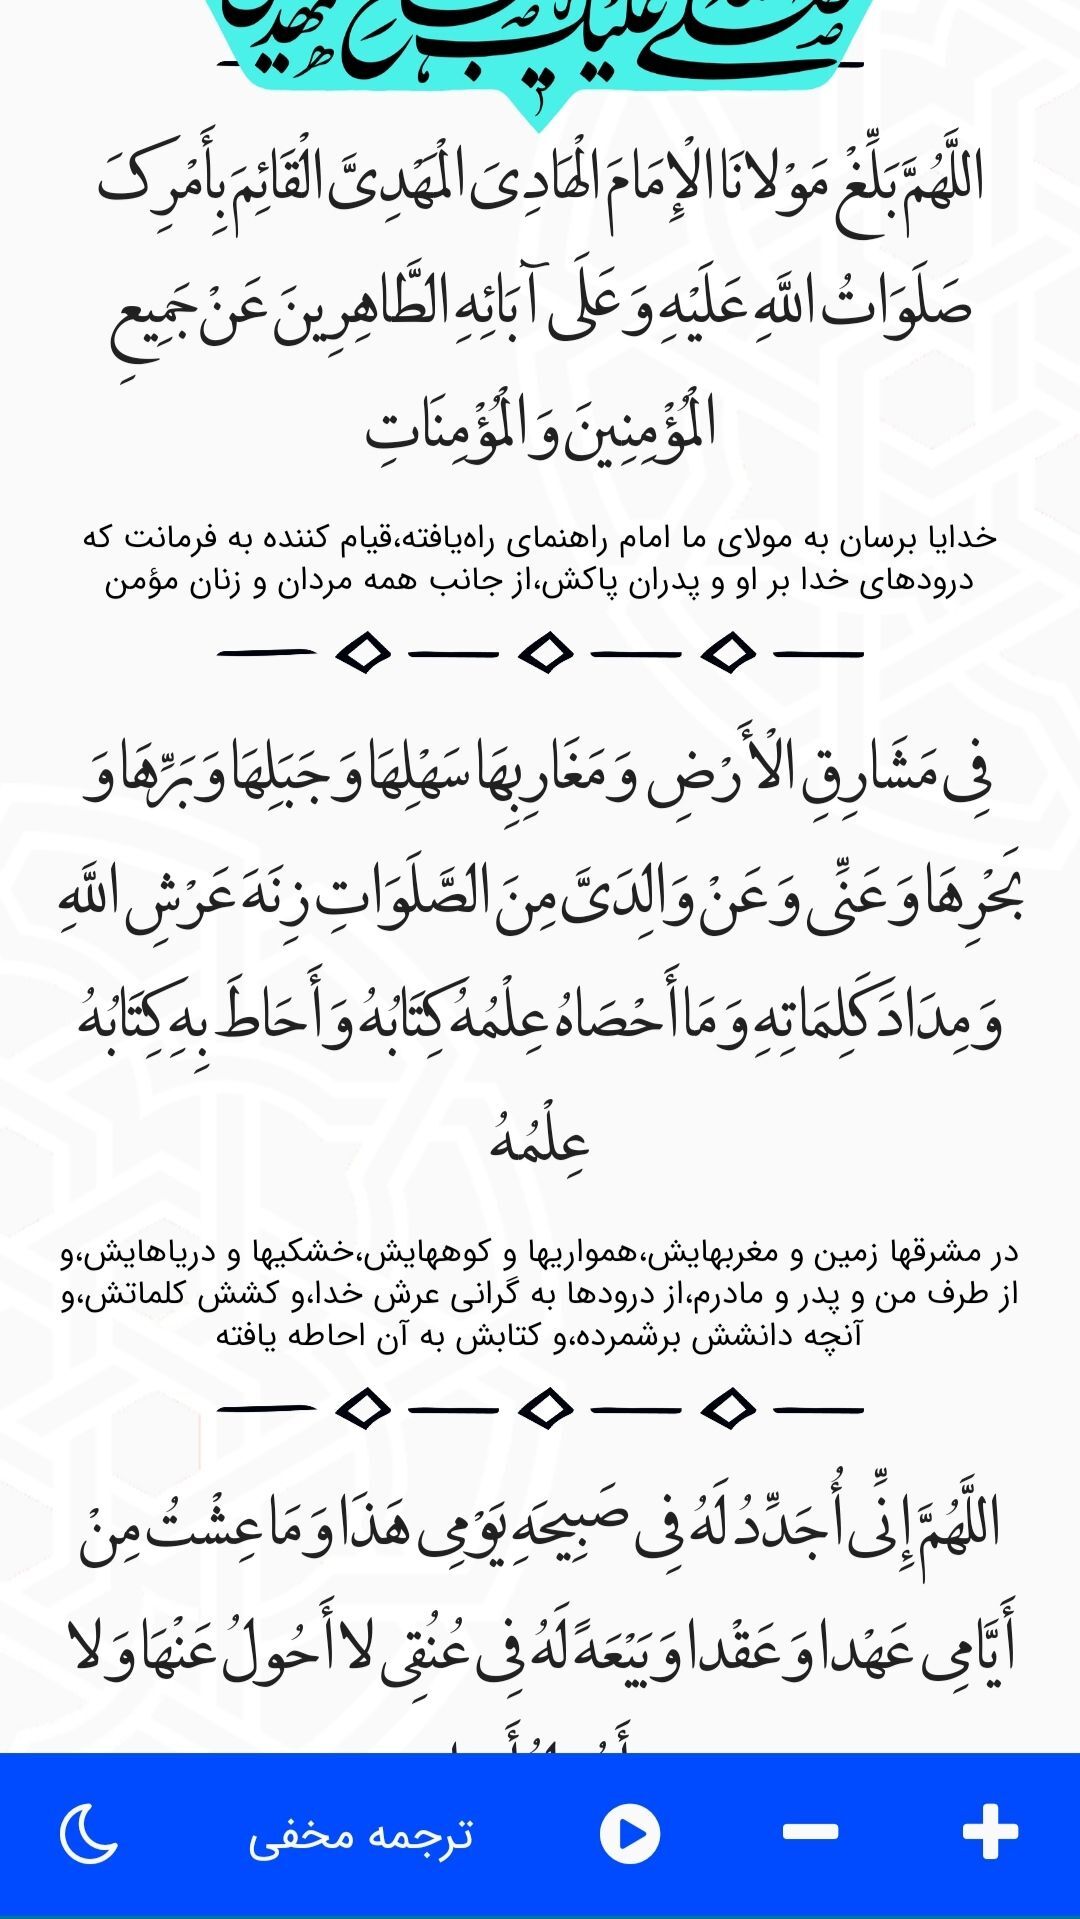 اللَّهُمَّ بَلِّغْ مَوْلانَا الْإِمَامَ الْهَادِیَ الْمَهْدِیَّ الْقَائِمَ بِأَمْرِکَ
صَلَوَاتُ اللَّهِ عَلَیْهِ وَ عَلَی آبَائِهِ الطَّاهِرِینَ عَنْ جَمِیعِ
الْمُؤْمِنِینَ وَ الْمُؤْمِنَاتِ
خدایا برسان به مولای ما امام راهنمای راه‌یافته،قیام کننده به فرمانت که
درودهای خدا بر او و پدران پاکش،از جانب همه مردان و زنان مؤمن
فِی مَشَارِقِ الْأَرْضِ وَ مَغَارِبِهَا سَهْلِهَا وَ جَبَلِهَا وَ بَرِّهَا وَ
بَحْرِهَا وَ عَنِّی وَ عَنْ وَالِدَیَّ مِنَ الصَّلَوَاتِ زِنَهَ عَرْشِ اللَّهِ
وَ مِدَادَ کَلِمَاتِهِ وَ مَا أَحْصَاهُ عِلْمُهُ کِتَابُهُ وَ أَحَاطَ بِهِ کِتَابُهُ
عِلْمُهُ
در مشرقها زمین و مغربهایش،همواریها و کوههایش،خشکیها و دریاهایش،و
از طرف من و پدر و مادرم،از درودها به گرانی عرش خدا،و کشش کلماتش،و
آنچه دانشش برشمرده،و کتابش به آن احاطه یافته
اللَّهُمَّ إِنِّی أُجَدِّدُ لَهُ فِی صَبِیحَهِ یَوْمِی هَذَا وَ مَا عِشْتُ مِنْ
أَیَّامِی عَهْدا وَ عَقْدا وَ بَیْعَهً لَهُ فِی عُنُقِی لا أَحُولُ عَنْهَا وَ لا
ترجمه مخفی